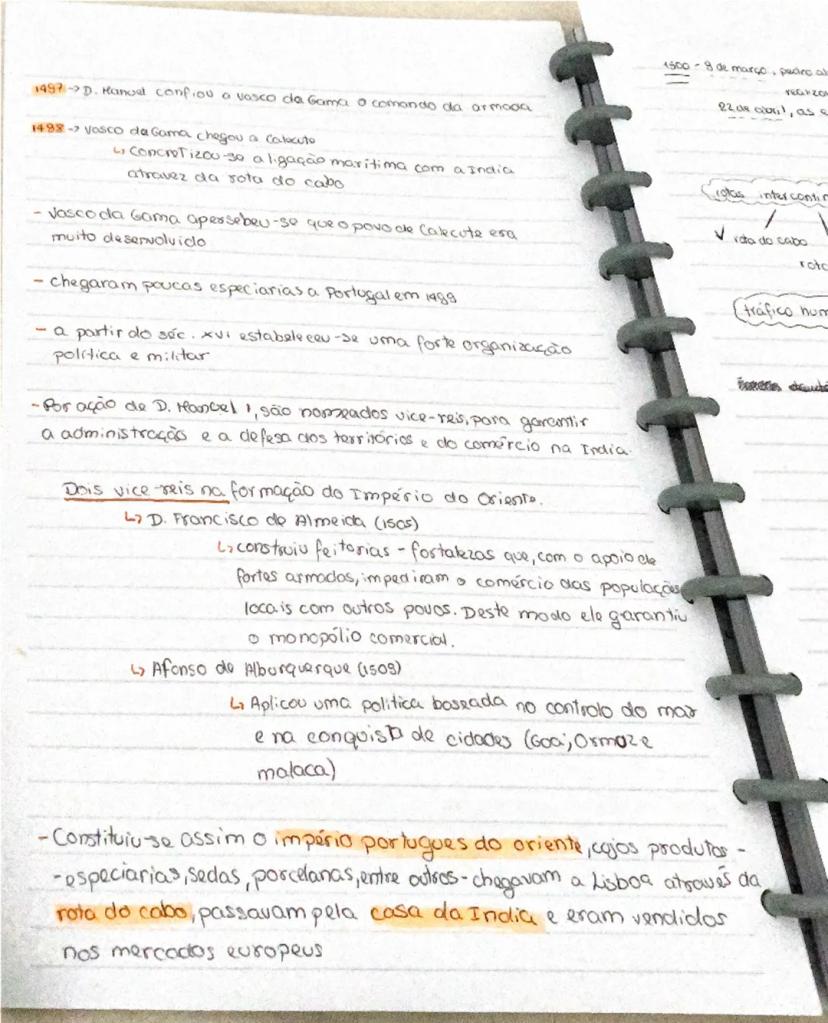 1497 -> D. Manuel confiou a vasco da Gama o comando da armada
1498 -> vasco da Gama chegou a Calecute
↳ concretizou-se a ligação marítima com a India
atravez da rota do cabo
- Vasco da Gama apersebeu-se que o povo de Calecute era
muito desenvolvido
- chegaram poucas especiarias a Portugal em 1499
- a partir do séc. XVI estabeleceu-se uma forte organização
política e militar
- Por ação de D. Manoel I, são nomeados vice-reis, para garantir
a administração e a defesa dos territórios e do comércio na India.
Dois vice-reis na formação do Império do Oriente.
↳ D. Francisco de Almeida (1505)
↳ construiu feitorias - fortalezas que, com o apoio de
fortes armadas, impediram o comércio das população
locais com outros povos. Deste modo ele garantiu
o monopólio comercial.
↳ Afonso de Alburquerque (1509)
↳ Aplicou uma politica baseada no controlo do mar
e na conquista de cidades (Goa, Ormuz e
malaca)
- Constituiu-se assim o império portugues do oriente, cujos produtos -
- especiarias, sedas, porcelanas, entre outros - chegavam a Lisboa através da
rota do cabo, passavam pela casa da India e eram vendidos
nos mercados europeus
1500 - 9 de março, pedro
22 de abril, as
rotas
rota do cabo
tráfico